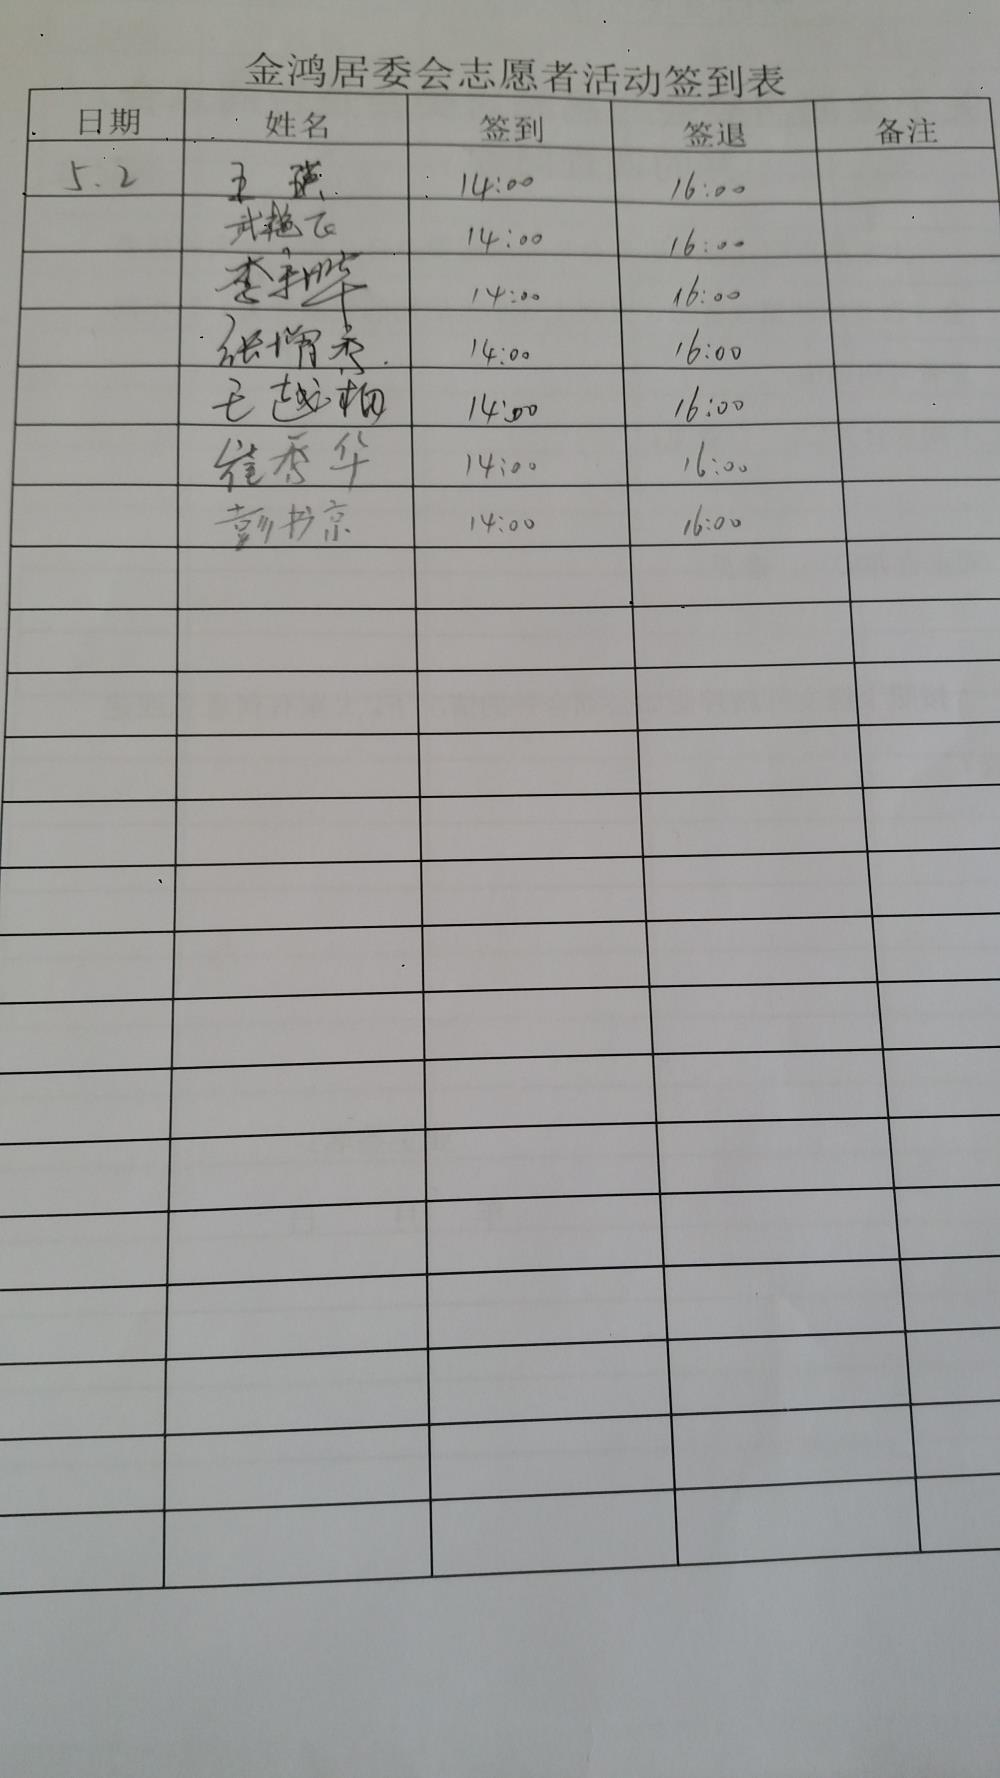 金鸿居委会志愿者活动签到表
日期 姓名 签到 签退 备注
5.2 王瑛 14:00 16:00
武艳飞 14:00 16:00
李 14:00 16:00
张增秀 14:00 16:00
王越楠 14:00 16:00
崔秀华 14:00 16:00
彭书京 14:00 16:00